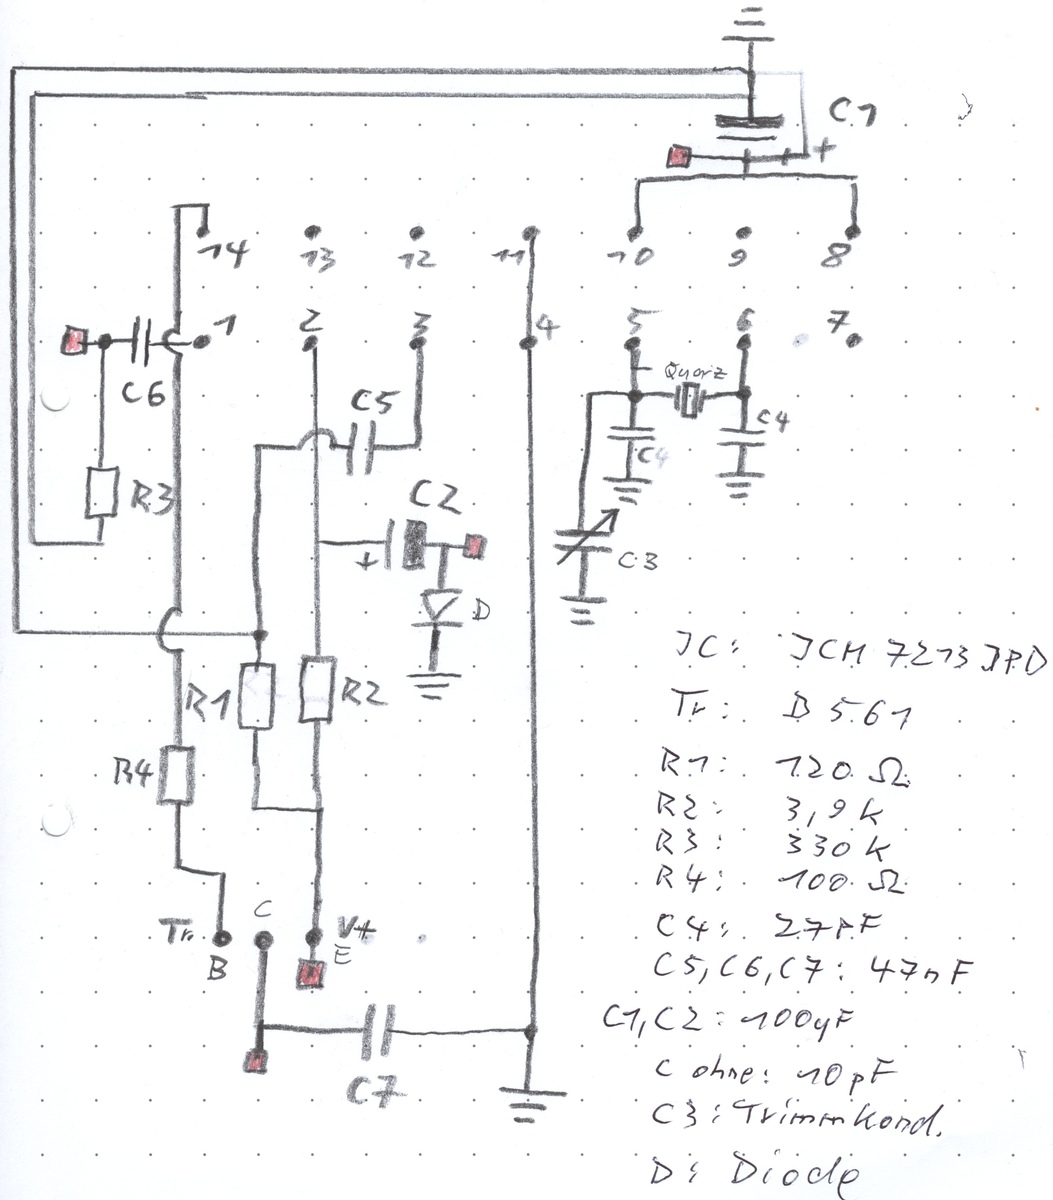 C1
+
14 13 12 11 10 9 8
1 2 3 4 5 6 7
C6
Quarz
C5
C4
C4
R3
C2
+
C3
D
R1 R2
R4
JC: JCM 7213 JPD
Tr: B 561
R1: 120 Ω
R2: 3,9 k
R3: 330 k
R4: 100 Ω
C4: 27pF
C5, C6, C7: 47nF
C1, C2: 100µF
C ohne: 10pF
C3: Trimmkond.
D: Diode
Tr. C V+
B E
C7